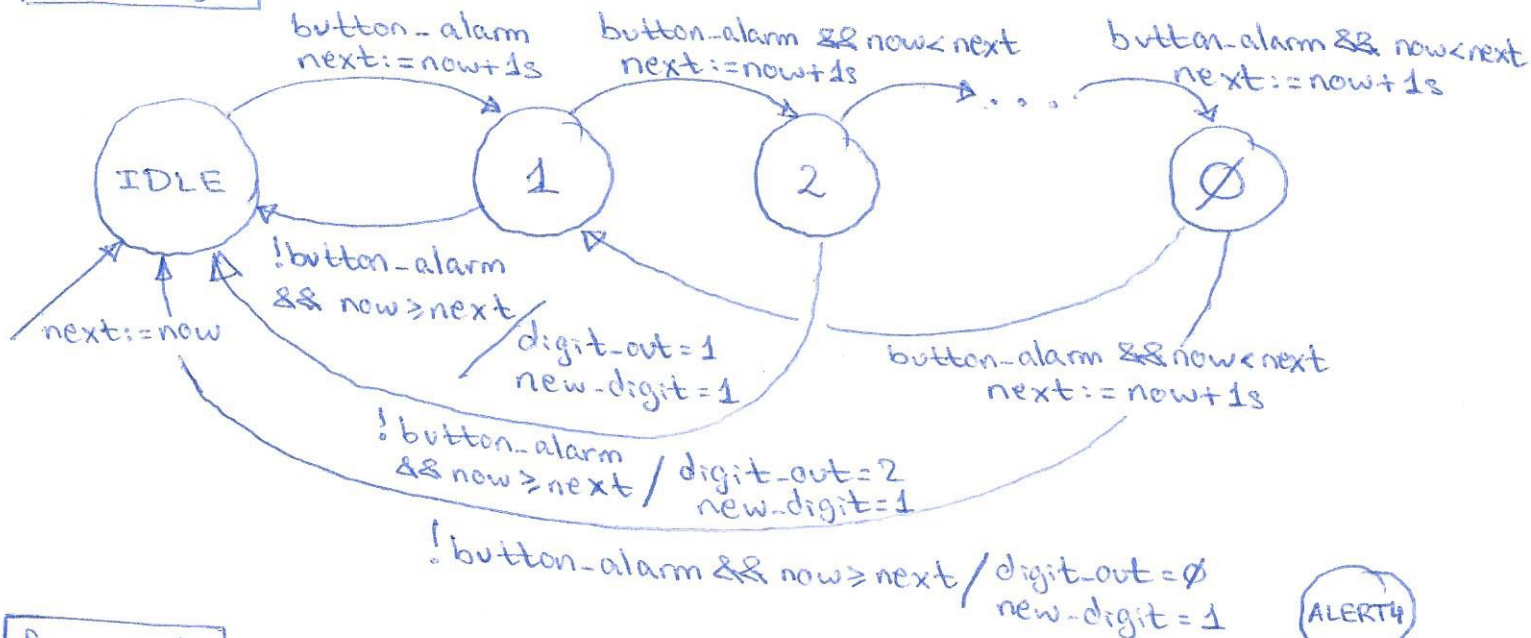 button_alarm
next:=now+1s
button_alarm && now<next
next:=now+1s
button_alarm && now<next
next:=now+1s
....
IDLE
1
2
Ø
!button_alarm
&& now≥next/
digit_out=1
new_digit=1
next:=now
button_alarm && now<next
next:=now+1s
!button_alarm
&& now≥next/
digit_out=2
new_digit=1
!button_alarm && now≥next/
digit_out=Ø
new_digit=1
ALERT4